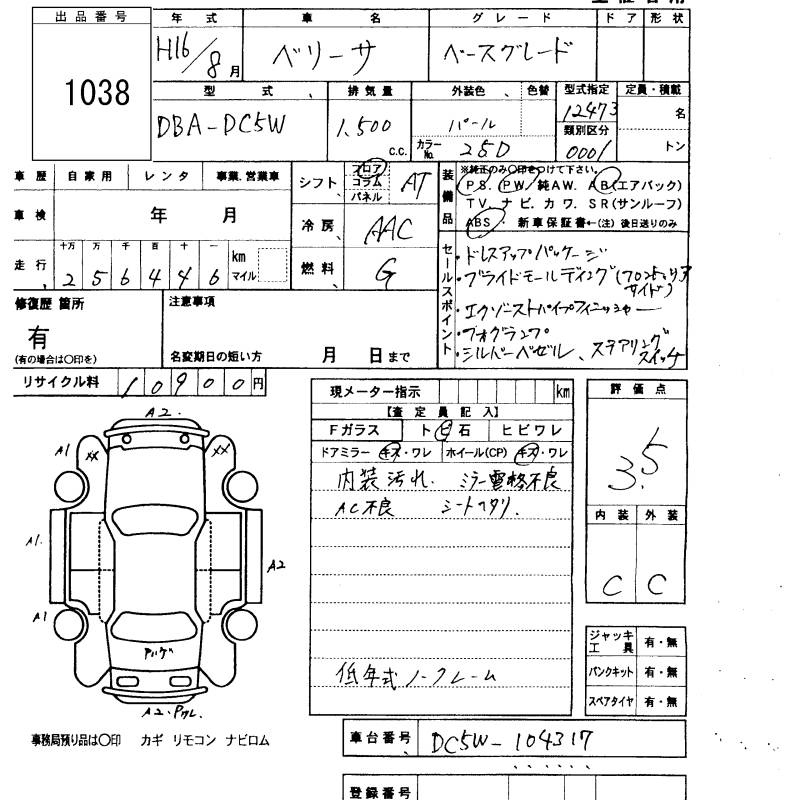 出品番号 年式 車名 グレード ドア 形状
1038 H16/8月 ベリーサ ベースグレード
型式 排気量 外装色 色替 型式指定 定員・積載
DBA-DC5W 1,500 c.c. パール 12473 名
カラーNo. 25D 類別区分 0001 トン
車歴 自家用 レンタ 事業.営業車 シフト フロア コラム パネル AT
装備品 ※純正のみ○印をつけて下さい。
PS. PW/純AW. AB(エアバック)
TV. ナビ. カワ. SR(サンルーフ)
ABS 新車保証書←(注)後日送りのみ
車検 年 月 冷房 AAC
走行 十万 万 千 百 十 一 km マイル 燃料 G
256446
セールスポイント
・ドレスアップパッケージ
・ブライドモールディング(フロント,リア
サイド)
・エクゾーストパイプフィニッシャー
・フォグランプ
・シルバーベゼル、ステアリング
スイッチ
修復歴 箇所 注意事項
有
(有の場合は○印を) 名変期日の短い方 月 日まで
リサイクル料 10900円
現メーター指示 km
【査定員記入】
Fガラス トビ石 ヒビワレ
ドアミラー キズ・ワレ ホイール(CP) キズ・ワレ
内装汚れ. ミラー電格不良
AC不良 シートヘタリ.
低年式 ノークレーム
評価点
3.5
内装 外装
C C
ジャッキ工具 有・無
パンクキット 有・無
スペアタイヤ 有・無
A2.
A1 XX XX
A1. A2
A1
A2.
事務局預り品は○印 カギ リモコン ナビロム
車台番号 DC5W-104317
登録番号